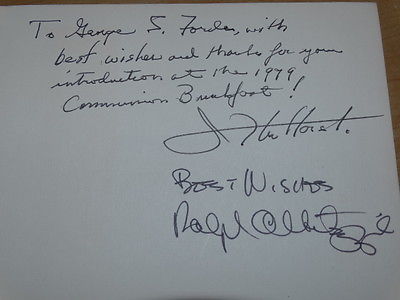 To George S. Forder, with
best wishes and thanks for your
introduction at the 1979
Communion Breakfast!
Best Wishes
Ralph